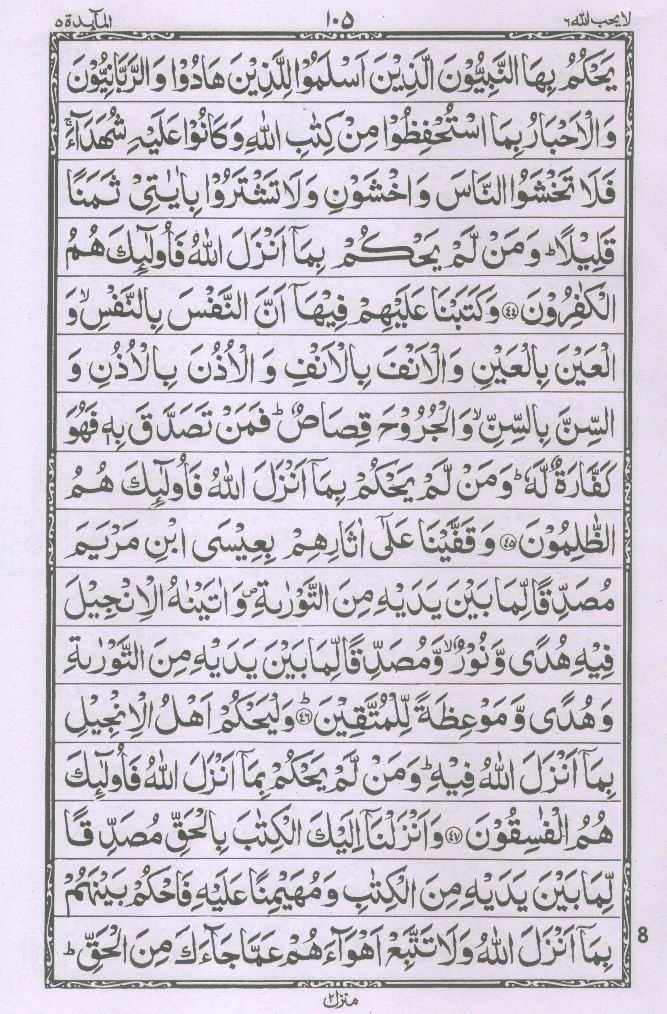 المآئدة ٥
١٠٥
لا يحب الله ٦
يَحْكُمُ بِهَا النَّبِيُّوْنَ الَّذِيْنَ اَسْلَمُوْا لِلَّذِيْنَ هَادُوْا وَالرَّبَّانِيُّوْنَ
وَالْاَحْبَارُ بِمَا اسْتُحْفِظُوْا مِنْ كِتٰبِ اللّٰهِ وَكَانُوْا عَلَيْهِ شُهَدَآءَ ۚ
فَلَا تَخْشَوُا النَّاسَ وَاخْشَوْنِ وَلَا تَشْتَرُوْا بِاٰيٰتِيْ ثَمَنًا
قَلِيْلًا ؕ وَمَنْ لَّمْ يَحْكُمْ بِمَاۤ اَنْزَلَ اللّٰهُ فَاُولٰٓئِكَ هُمُ
الْكٰفِرُوْنَ ﴿٤٤﴾ وَكَتَبْنَا عَلَيْهِمْ فِيْهَاۤ اَنَّ النَّفْسَ بِالنَّفْسِ ۙ وَ
الْعَيْنَ بِالْعَيْنِ وَالْاَنْفَ بِالْاَنْفِ وَ الْاُذُنَ بِالْاُذُنِ وَ
السِّنَّ بِالسِّنِّ ۙ وَالْجُرُوْحَ قِصَاصٌ ؕ فَمَنْ تَصَدَّقَ بِهٖ فَهُوَ
كَفَّارَةٌ لَّهٗ ؕ وَمَنْ لَّمْ يَحْكُمْ بِمَاۤ اَنْزَلَ اللّٰهُ فَاُولٰٓئِكَ هُمُ
الظّٰلِمُوْنَ ﴿٤٥﴾ وَقَفَّيْنَا عَلٰۤى اٰثَارِهِمْ بِعِيْسَى ابْنِ مَرْيَمَ
مُصَدِّقًا لِّمَا بَيْنَ يَدَيْهِ مِنَ التَّوْرٰىةِ ۪ وَاٰتَيْنٰهُ الْاِنْجِيْلَ
فِيْهِ هُدًى وَّنُوْرٌ ۙ وَّمُصَدِّقًا لِّمَا بَيْنَ يَدَيْهِ مِنَ التَّوْرٰىةِ
وَهُدًى وَّمَوْعِظَةً لِّلْمُتَّقِيْنَ ﴿٤٦﴾ؕ وَلْيَحْكُمْ اَهْلُ الْاِنْجِيْلِ
بِمَاۤ اَنْزَلَ اللّٰهُ فِيْهِ ؕ وَمَنْ لَّمْ يَحْكُمْ بِمَاۤ اَنْزَلَ اللّٰهُ فَاُولٰٓئِكَ
هُمُ الْفٰسِقُوْنَ ﴿٤٧﴾ وَاَنْزَلْنَاۤ اِلَيْكَ الْكِتٰبَ بِالْحَقِّ مُصَدِّقًا
لِّمَا بَيْنَ يَدَيْهِ مِنَ الْكِتٰبِ وَمُهَيْمِنًا عَلَيْهِ فَاحْكُمْ بَيْنَهُمْ
بِمَاۤ اَنْزَلَ اللّٰهُ وَلَا تَتَّبِعْ اَهْوَآءَهُمْ عَمَّا جَآءَكَ مِنَ الْحَقِّ ؕ
8
منزل ٢